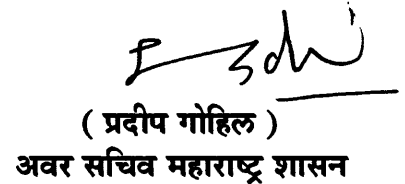 ( प्रदीप गोहिल )
अवर सचिव महाराष्ट्र शासन